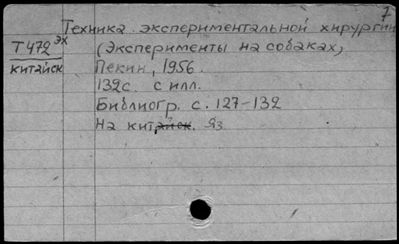 7
Техника экспериментальной хирургии
Т472 эк (Эксперименты на собаках,
китайск Пекин, 1956.
132с. с илл.
Библиогр. с. 127-132
На китайск. яз